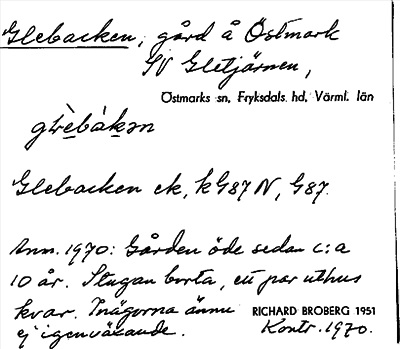 Glebacken, gård å Östmark
SV Gletjärnen,
Östmarks sn, Fryksdals hd, Värml. län
glèbàkən
Glebacken ek, kG87N, G87.
Anm. 1970: Gården öde sedan c:a
10 år. Stugan borta, ett par uthus
kvar. Inägorna ännu
ej igenväxande.
RICHARD BROBERG 1951
Kontr. 1970.